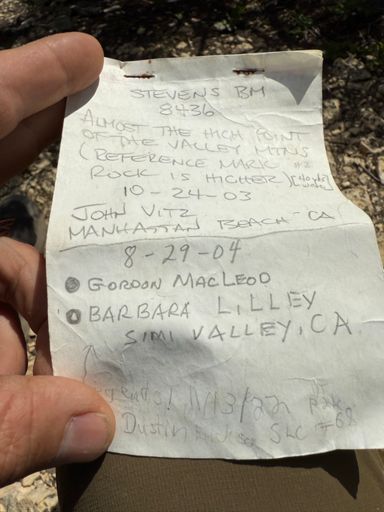 STEVENS BM
8436
ALMOST THE HIGH POINT
OF THE VALLEY MTNS
(REFERENCE MARK #2
ROCK IS HIGHER)
10-24-03
JOHN VITZ
MANHATTAN BEACH CA
8-29-04
GORDON MACLEOD
BARBARA LILLEY
SIMI VALLEY, CA
Dustin SLC